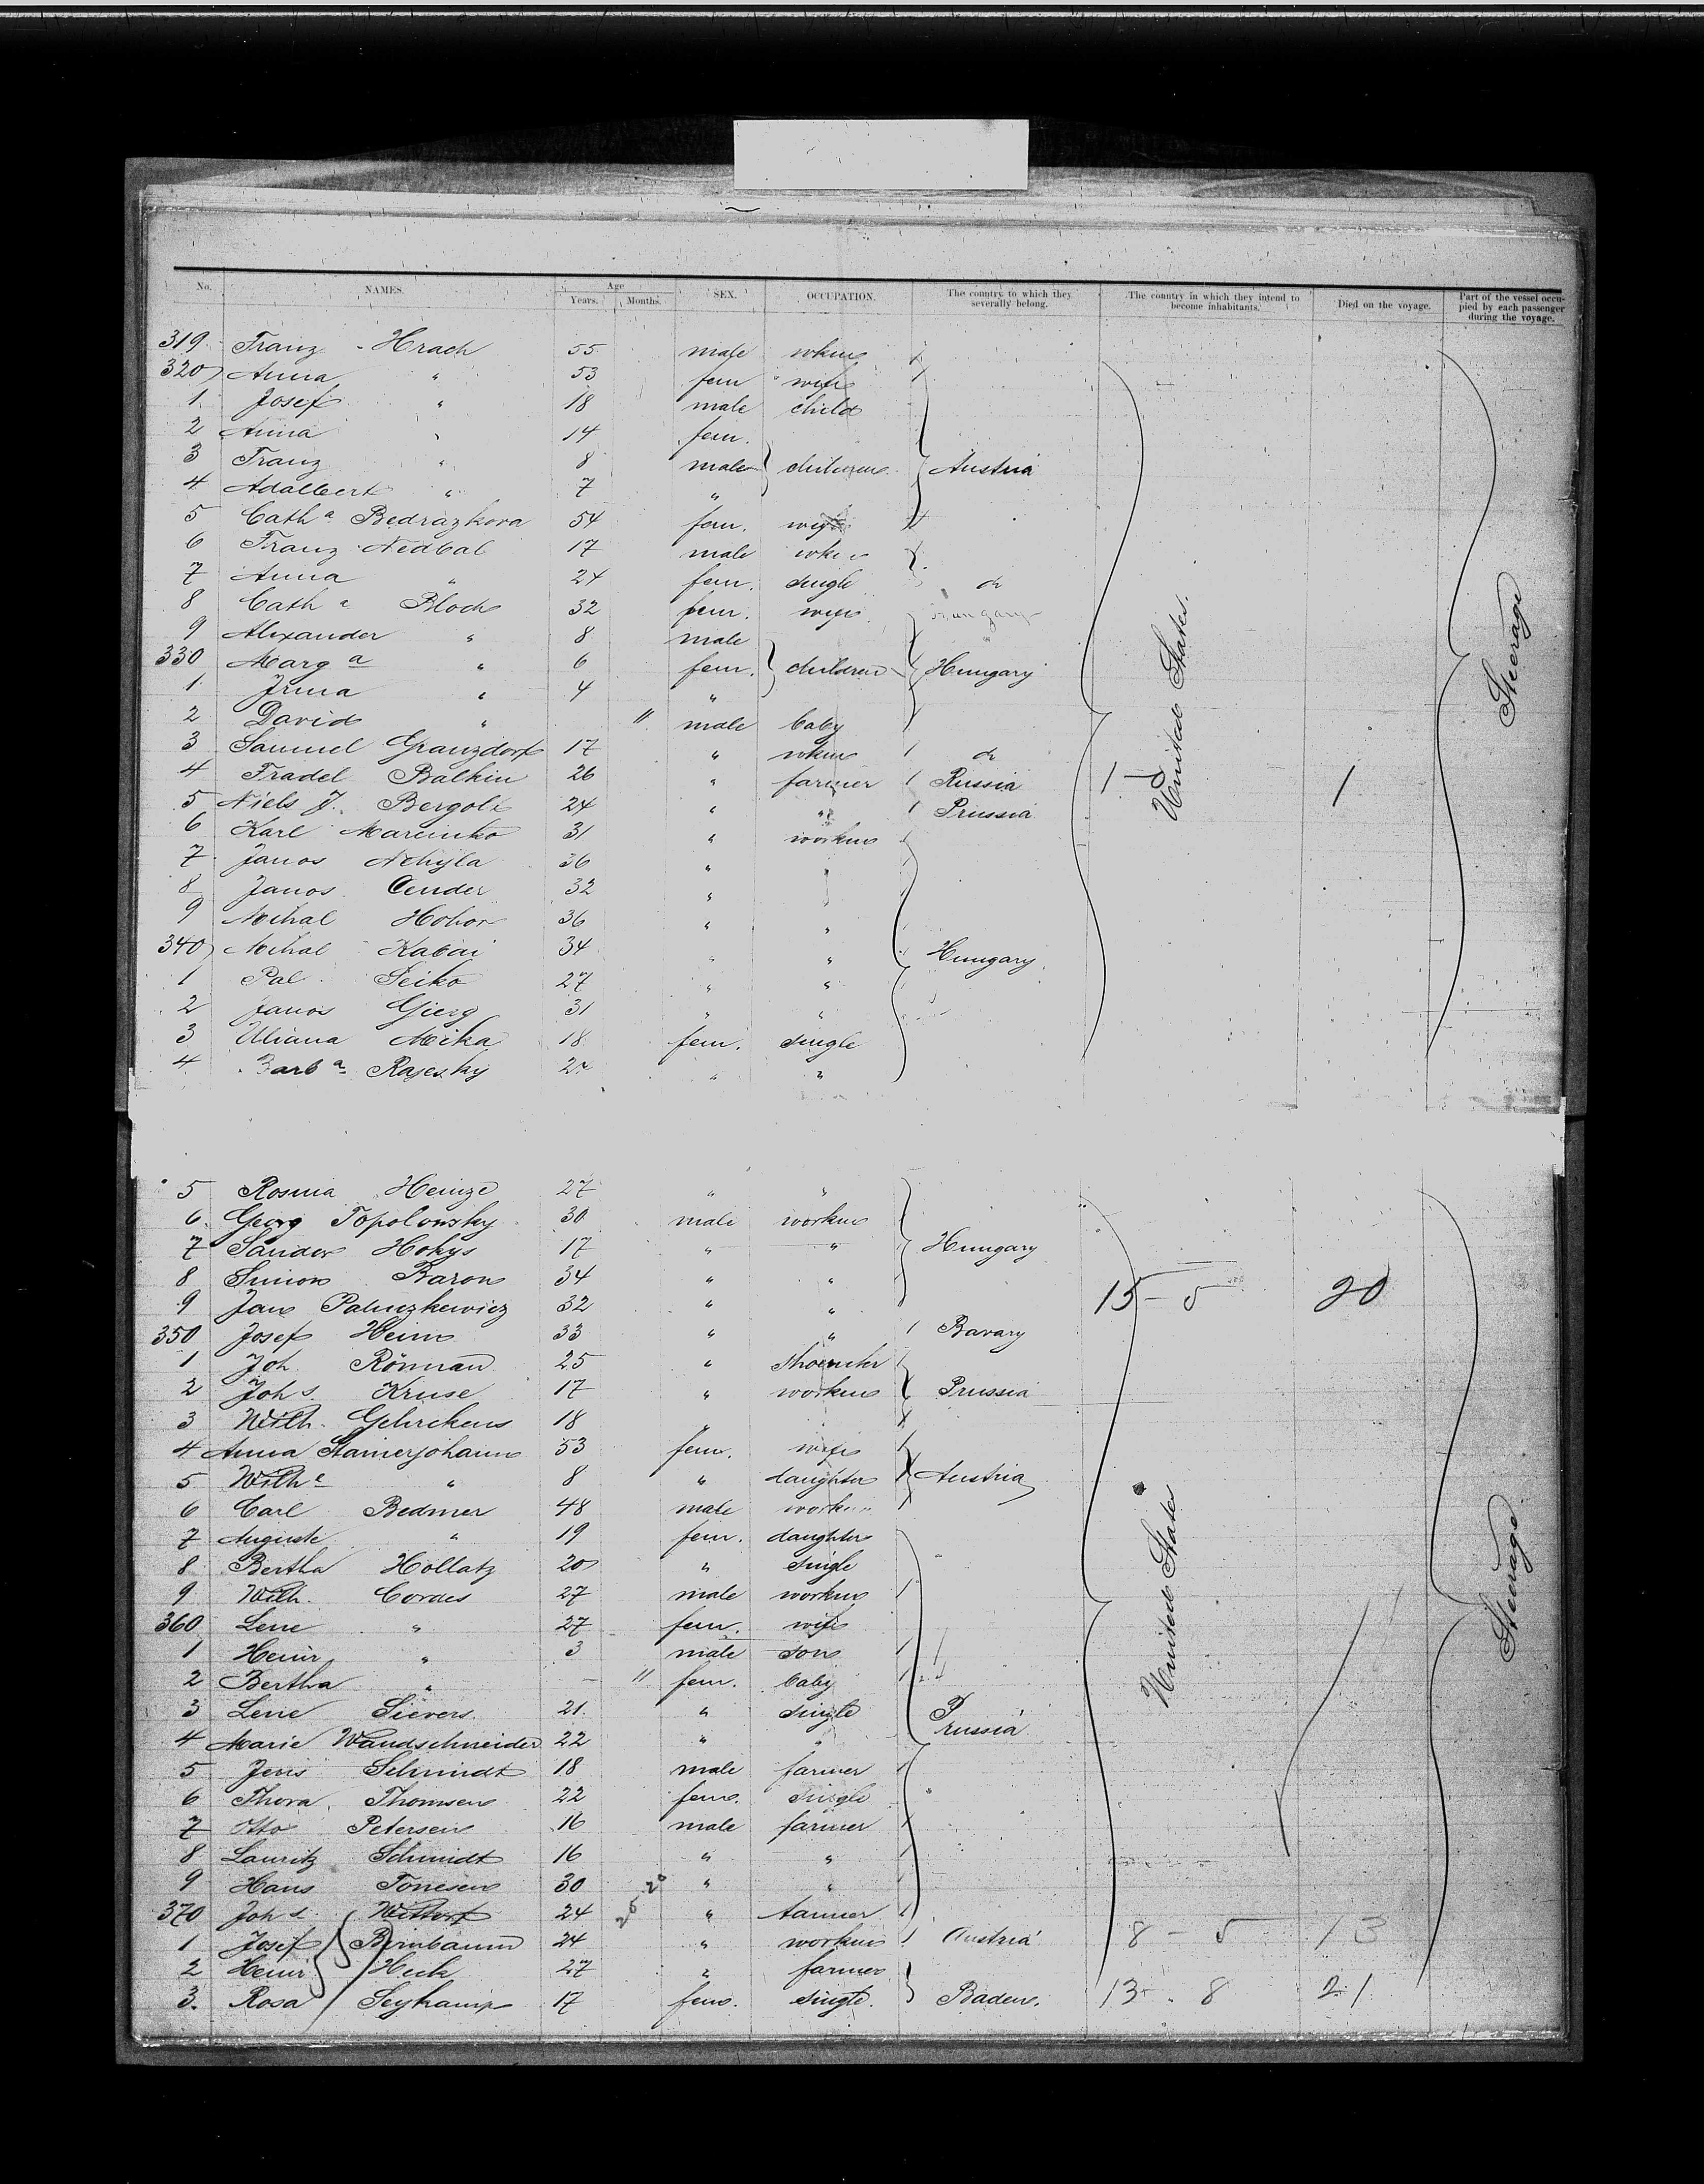 No. NAMES. Age Years. Months. SEX. OCCUPATION. The country to which they severally belong. The country in which they intend to become inhabitants. Died on the voyage. Part of the vessel occupied by each passenger during the voyage.
319 Franz Hrach 55 male wkm
320 Anna " 53 fem wife
1 Josef " 18 male child
2 Anna " 14 fem.
3 Franz " 8 male children Austria
4 Adalbert " 7 "
5 Cath a Bedrazkova 54 fem. wife
6 Franz Nedbal 17 male wkm
7 Anna " 24 fem. single do
8 Cath a Bloch 32 fem. wife Hungary
9 Alexander " 8 male
330 Marg a " 6 fem. children Hungary
1 Irma " 4 "
2 David " 11 male baby
3 Samuel Granzdorf 17 " wkm do
4 Fradel Balkin 26 " farmer Russia 1 1
5 Niels J. Bergoli 24 " " Prussia
6 Karl Marcinko 31 " workm
7 Janos Nehyla 36 "
8 Janos Cender 32 "
9 Mihal Hohor 36 " "
340 Mihal Kabai 34 " " Hungary
1 Pal Seiko 27 " "
2 Janos Gjerg 31 " "
3 Uliana Mika 18 fem. single
4 Barb a Rajesky " "
United States.
Steerage
5 Rosina Heinze 27 " "
6 Georg Topolowsky 30 male workm
7 Sandor Hokys 17 " " Hungary
8 Simon Baron 34 " "
9 Jan Paluszkewicz 32 " " 15 - 5 20
350 Josef Heim 33 " " Bavary
1 Joh. Rönnan 25 " Shoemker
2 Joh s. Kruse 17 " workm Prussia
3 Wilh. Gehrckens 18 "
4 Anna Stamerjohann 53 fem. wife
5 Wilh e " 8 " daughter Austria
6 Carl Bedmer 48 male workm
7 Auguste " 19 fem. daughter
8 Bertha Hollatz 20 " single
9 Wilh. Cordes 27 male workm
360 Lene " 27 fem. wife
1 Heinr " 3 male son
2 Bertha " - 11 fem. baby
3 Lene Sievers 21 " single Prussia
4 Marie Wandschneider 22 " "
5 Jens Schmidt 18 male farmer
6 Thora Thomsen 22 fem. single
7 Otto Petersen 16 male farmer
8 Lauritz Schmidt 16 " "
9 Hans Tonnesen 30 " "
370 Joh s. Wittorf 24 " tanner
1 Josef Birnbaum 24 " workm Austria 8 - 5 13
2 Heinr Heck 27 " farmer
3. Rosa Seykamp 17 fem. single. Baden. 13 - 8 21
United States
Steerage